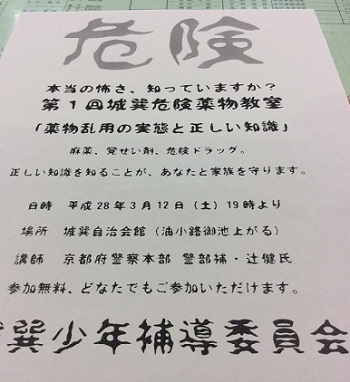 危険
本当の怖さ、知っていますか?
第1回城巽危険薬物教室
「薬物乱用の実態と正しい知識」
麻薬、覚せい剤、危険ドラッグ。
正しい知識を知ることが、あなたと家族を守ります。
日時 平成28年3月12日(土)19時より
場所 城巽自治会館(油小路御池上がる)
講師 京都府警察本部 警部補・辻健氏
参加無料、どなたでもご参加いただけます。
巽少年補導委員会